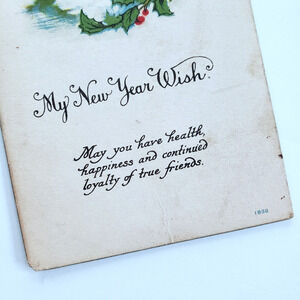 My New Year Wish.
May you have health,
happiness and continued
loyalty of true friends.